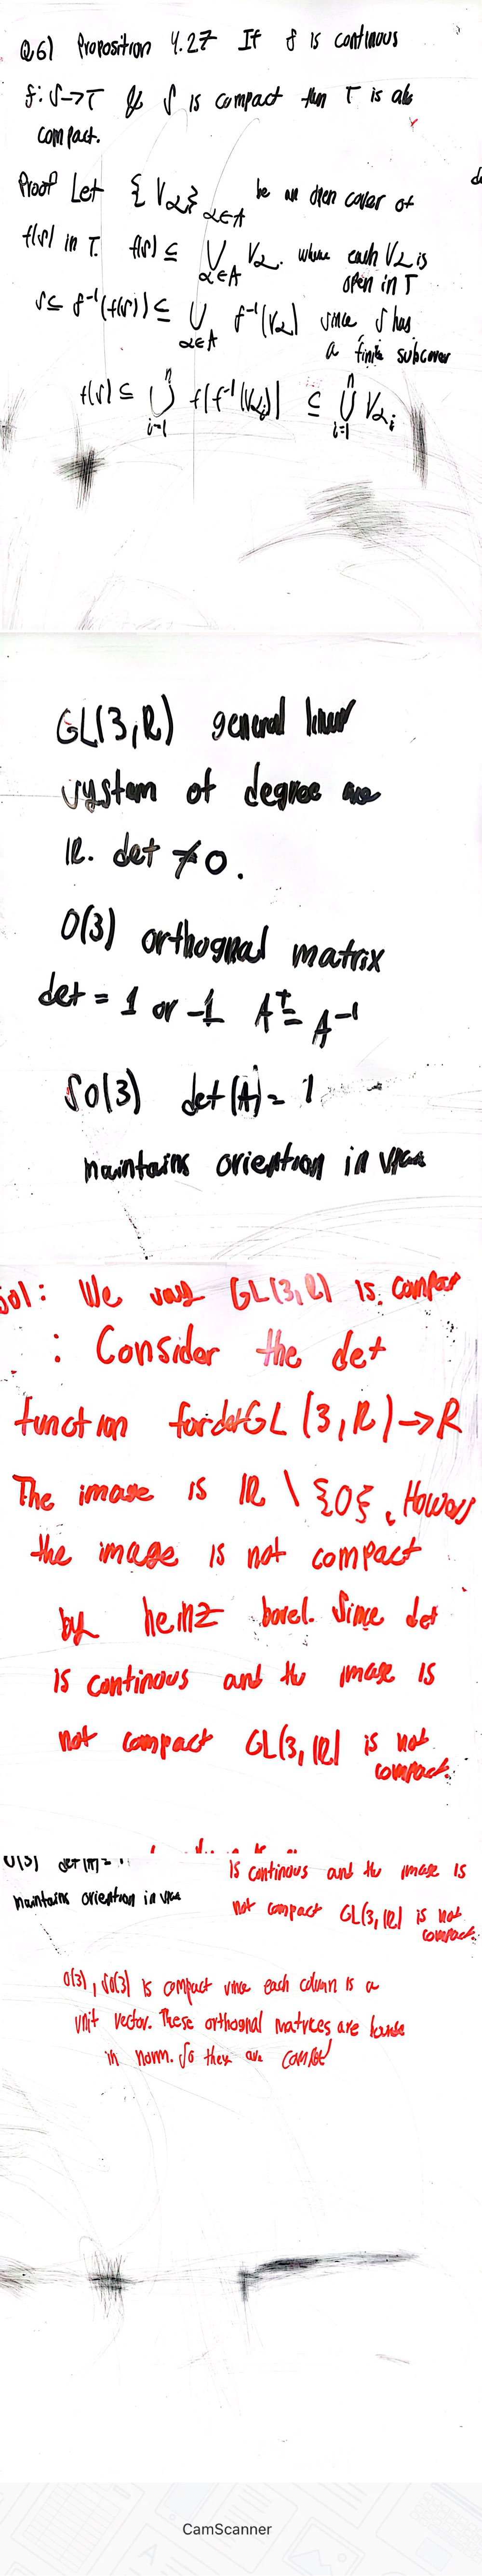 Q6) Proposition 4.27 If f is continous
f: S→T & S is compact then T is als
compact.
Proof Let {Vα}α∈A be an open cover of
f(S) in T. f(S) ⊆ ⋃α∈A Vα. where each Vα is
open in T
S ⊆ f⁻¹(f(S)) ⊆ ⋃α∈A f⁻¹(Vα) since S has
a finite subcover
f(S) ⊆ ⋃ⁿi=1 f(f⁻¹(Vαi)) ⊆ ⋃ⁿi=1 Vαi
GL(3,R) general linear
system of degree
IR. det ≠ 0.
O(3) orthognal matrix
det = 1 or -1 Aᵀ = A⁻¹
SO(3) det(A) = 1
maintains oriention in
sol: We GL(3,R) is
: Consider the det
function for det GL(3,R)→R
The image is IR \ {0}.
the image is not compact
by heinz borel. Since det
is continous and the image is
not compact GL(3,IR) is not
compact.
maintains oriention in
is continous and the image is
not compact GL(3,IR) is not
compact.
O(3), SO(3) is compact since each column is a
unit vector. These orthognal matrices are
in norm. So they are
CamScanner